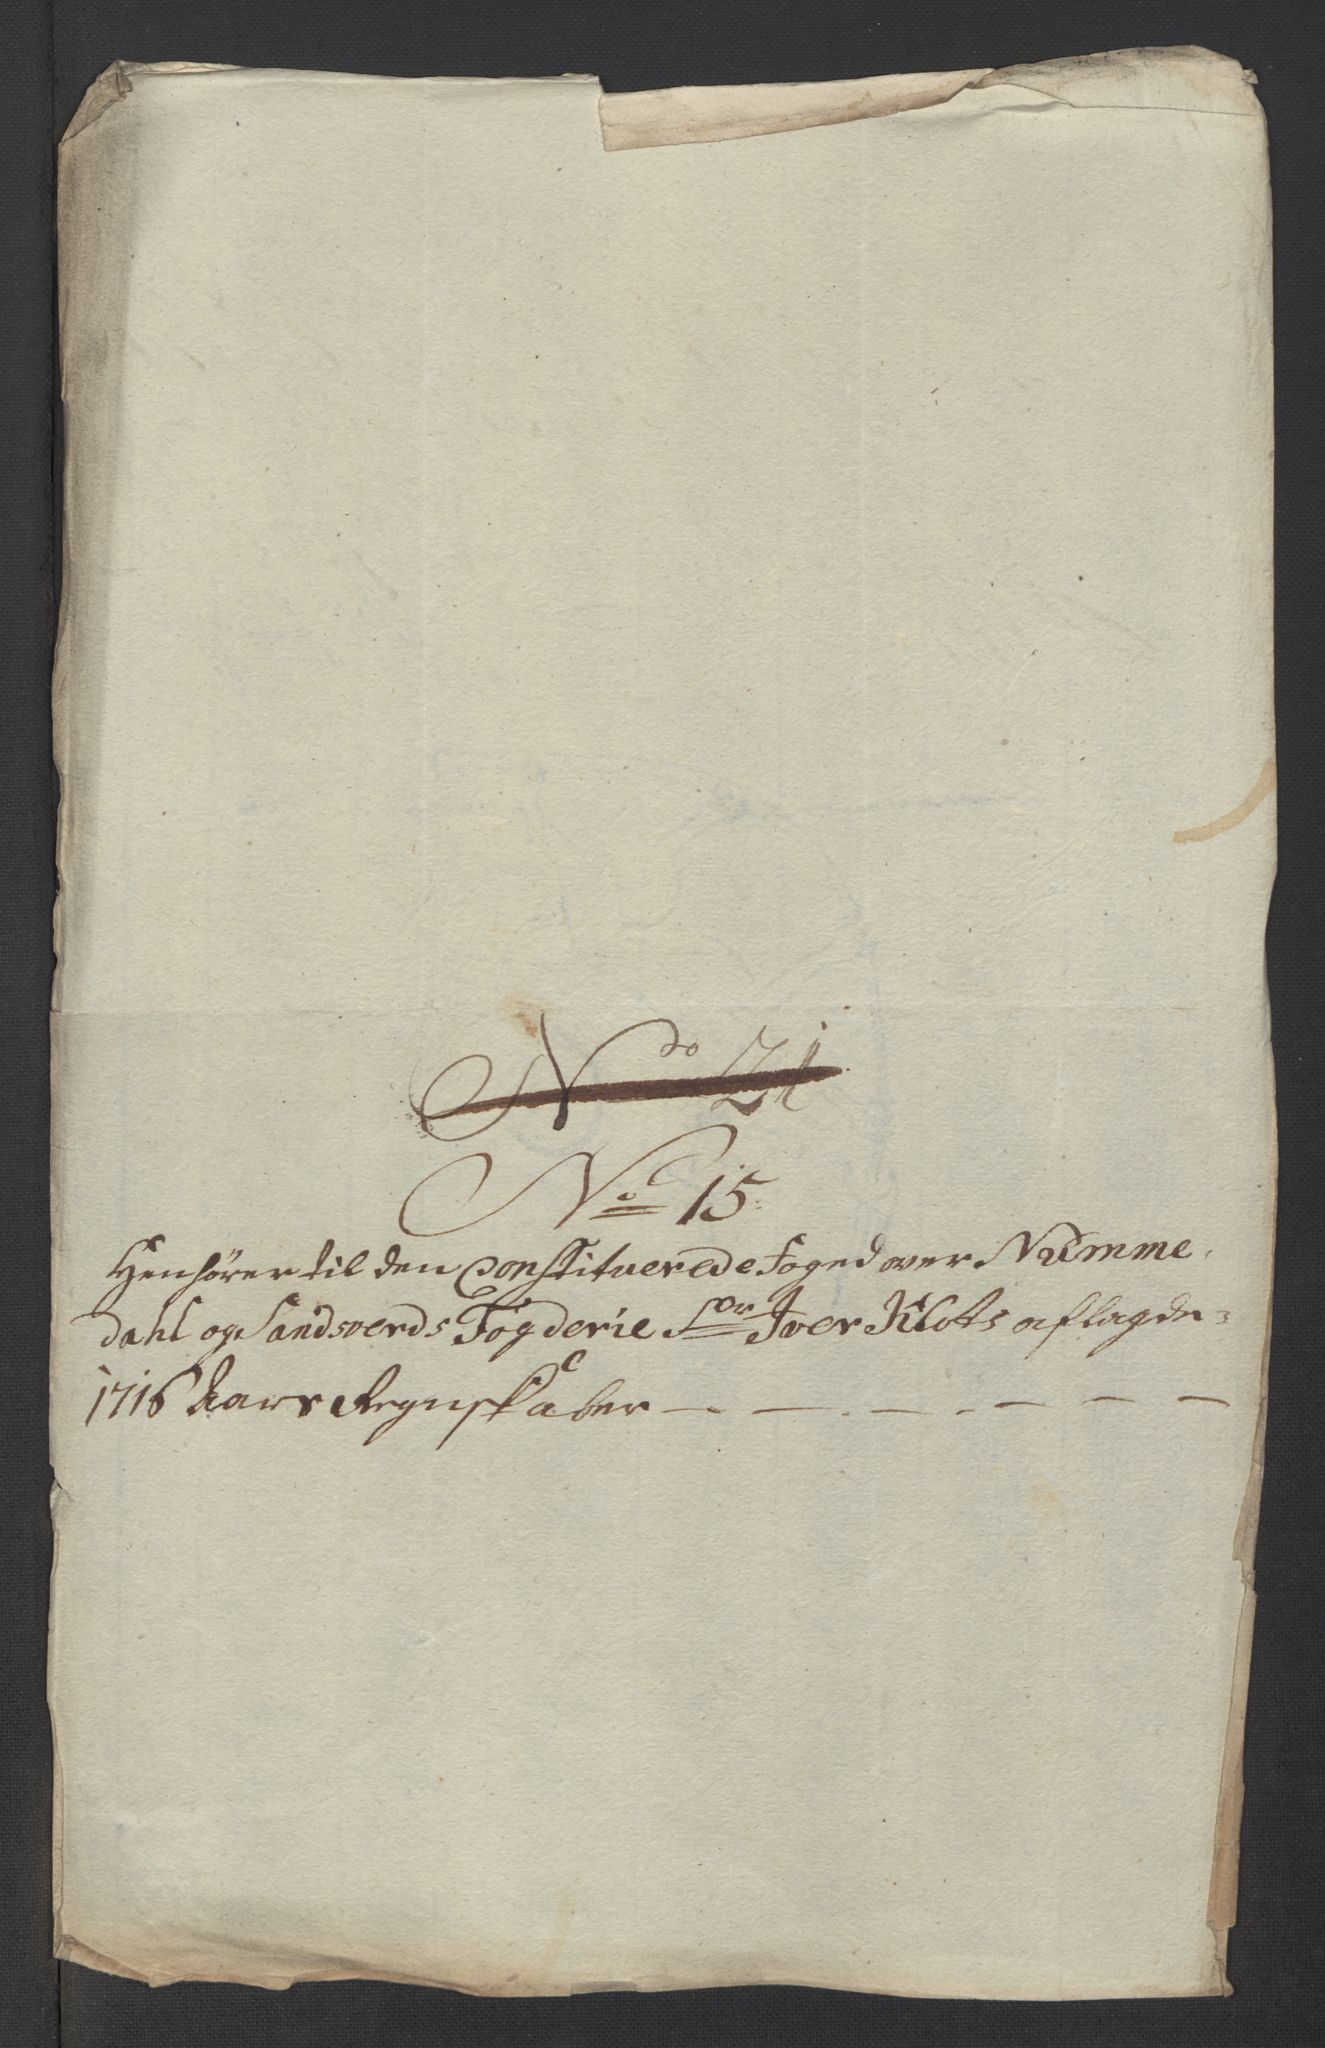 No 21
No 15
Henhører til den Constituerede foged over Numme-
dahl og Sandsverds Fogderie Sor Iver Klots aflagde
1716 Aars Regnskaber